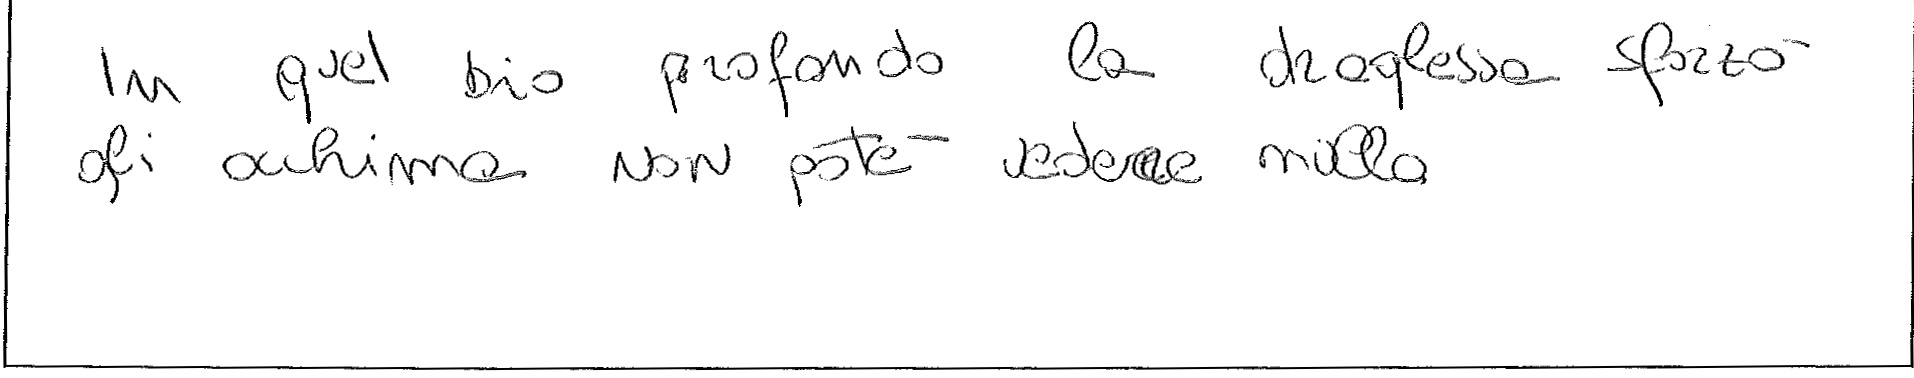 In quel bio profondo la draglessa sforzò
gli achima non potè vedere nulla